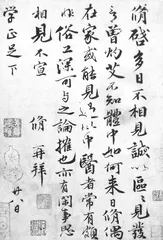 脩啓多日不相見誠以區區見發
言曾灼艾不知體中如何來日脩偶
在家或能見過此中醫者常有頗
非俗工深可與之論搉也亦有閑事思
相見不宣 脩再拜
學正足下 廿八日